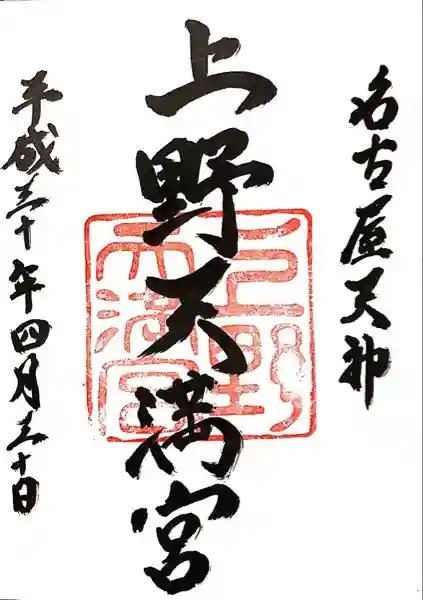 名古屋天神
上野天満宮
上野天満宮
平成三十年四月三十日